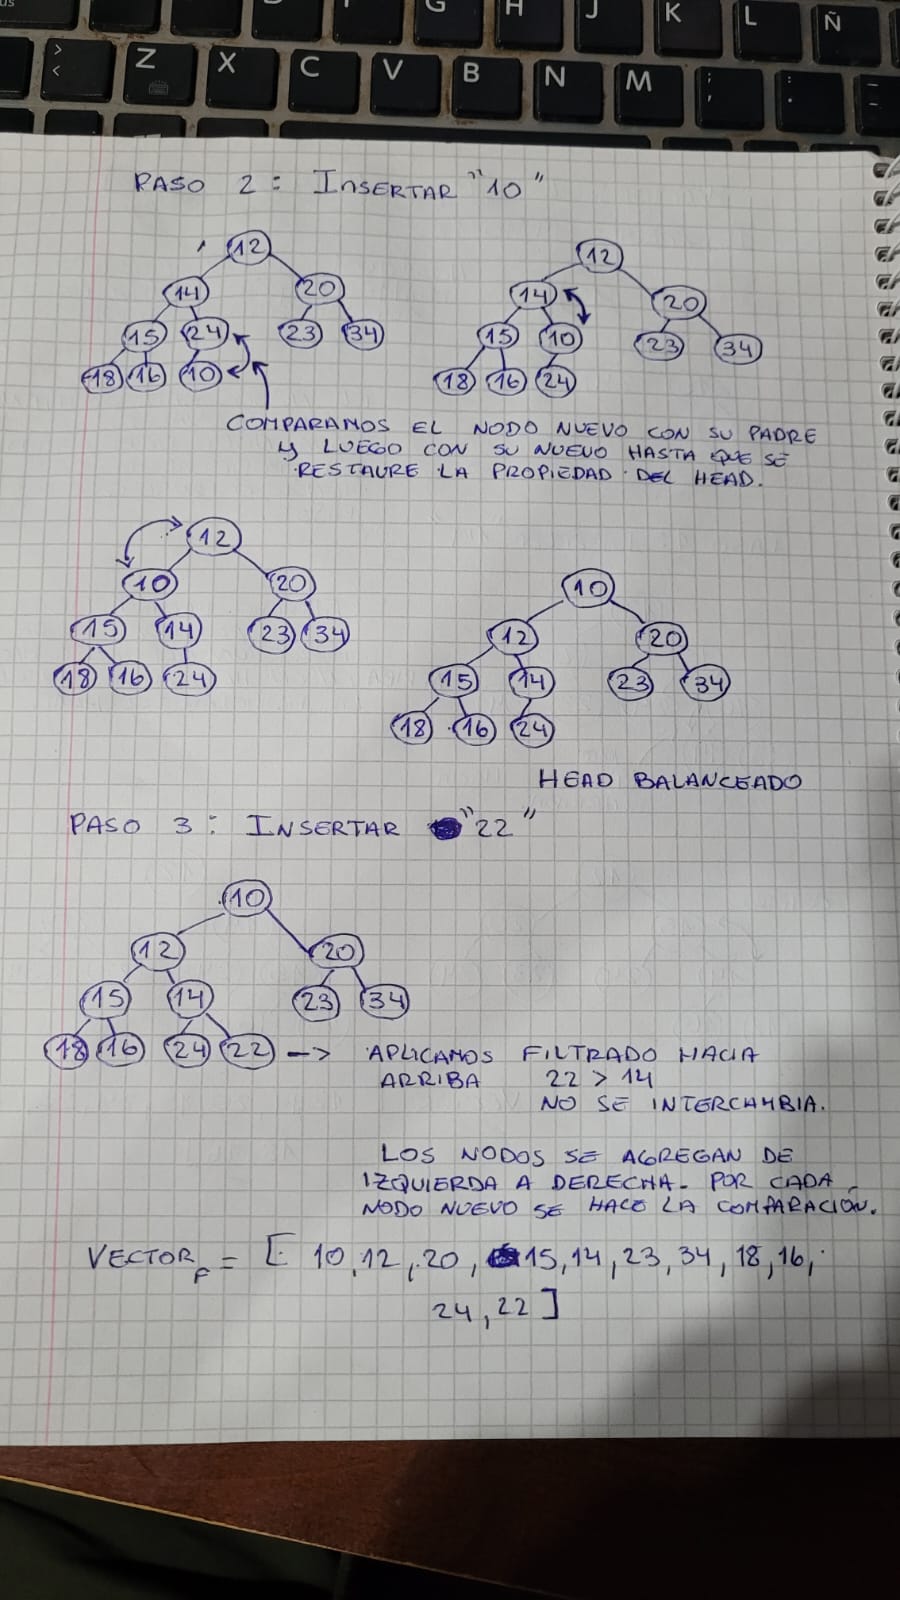 G H J K L Ñ
> < Z X C V B N M ; , : .
PASO 2: INSERTAR "10"
12 12
14 20 14 20
15 24 23 34 15 10 23 34
18 16 10 18 16 24
COMPARAMOS EL NODO NUEVO CON SU PADRE
Y LUEGO CON SU NUEVO HASTA QUE SE
RESTAURE LA PROPIEDAD DEL HEAD.
12 10
10 20 12 20
15 14 23 34 15 14 23 34
18 16 24 18 16 24
HEAD BALANCEADO
PASO 3: INSERTAR "22"
10
12 20
15 14 23 34
18 16 24 22 --> APLICAMOS FILTRADO HACIA
ARRIBA 22 > 14
NO SE INTERCAMBIA.
LOS NODOS SE AGREGAN DE
IZQUIERDA A DERECHA. POR CADA
NODO NUEVO SE HACE LA COMPARACIÓN.
VECTOR F = [ 10, 12, 20, 15, 14, 23, 34, 18, 16,
24, 22 ]